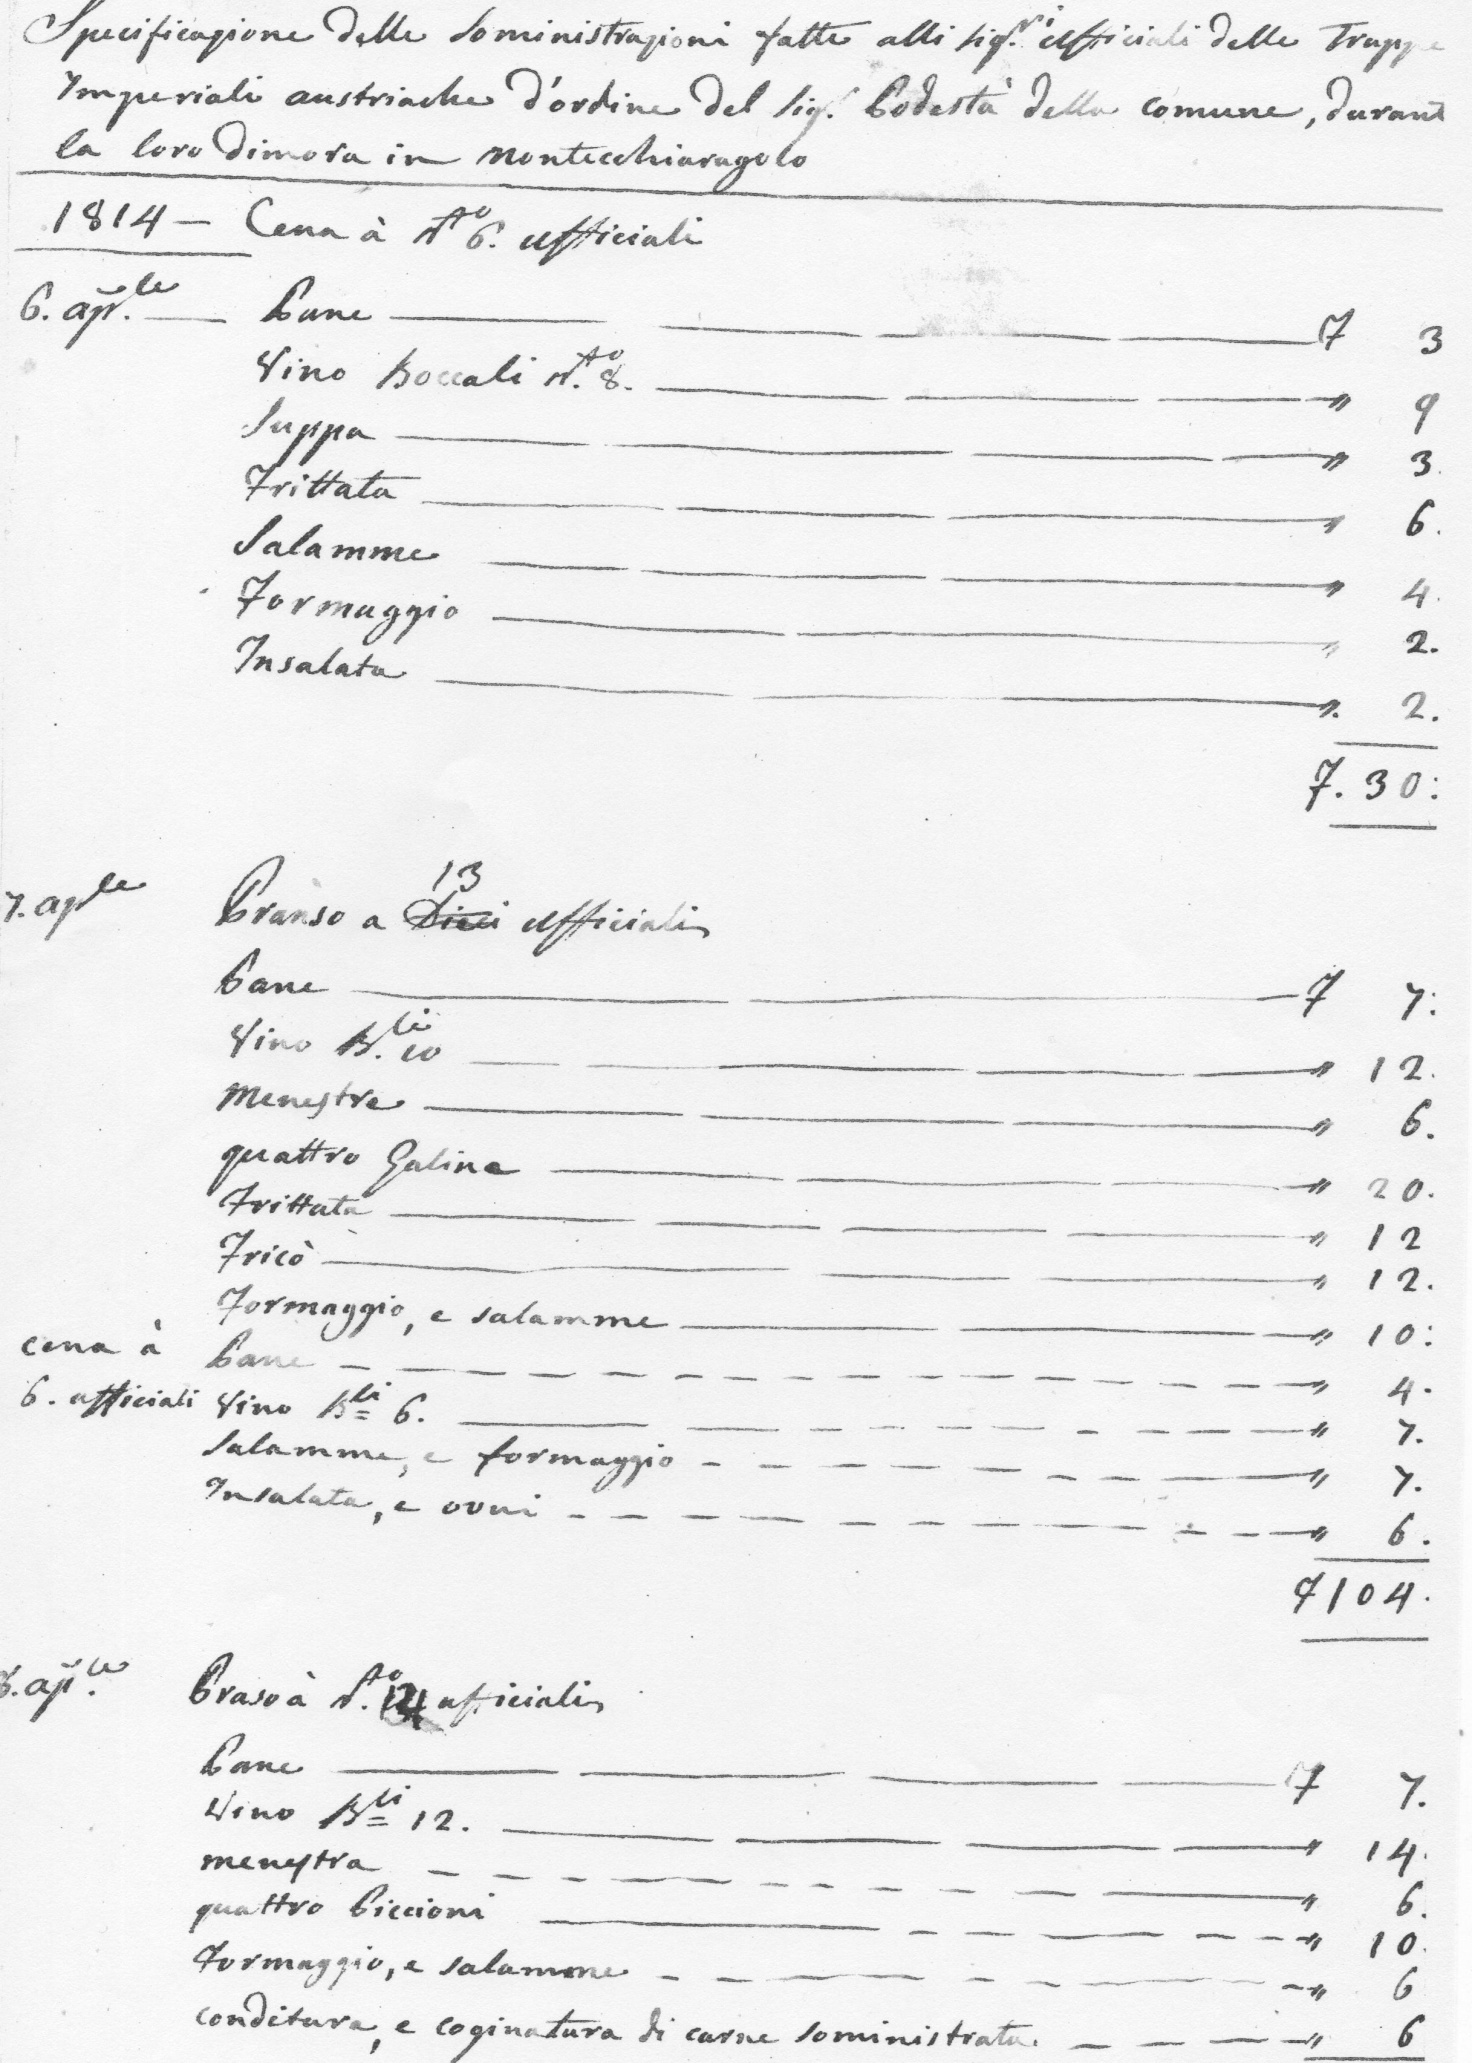 Specificazione delle Sominist̄razioni fatte alli Sig.ri ufficiali delle Truppe
Imperiali austriache d'ordine del Sig.r Podestà della comune, durant
la loro Dimora in Montecchiarugolo
1814 — Cena à N.ro 6. ufficiali
6. ap.le — Pane — F 3
Vino Boccali N.ro 8. — " 9
Suppa — " 3
Frittata — " 6.
Salamme — " 4.
Formaggio — " 2.
Insalata — ". 2.
F. 30:
7. aple Pranso a Dieci 13 ufficiali
Pane — F 7:
Vino B.li 10 — " 12.
Menestre — " 6.
quattro Galine — " 20.
Frittata — " 12
Fricò — " 12.
Formaggio, e salamme — " 10:
cena à Pane — " 4.
6. ufficiali Vino Bli 6. — " 7.
Salamme, e formaggio — " 7.
Insalata, e ovvi — " 6.
F 104.
8. ap.le Praso à N.ro ufficiali
Pane — F 7.
Vino Bli 12. — " 14.
menestra — " 6.
quattro Piccioni — " 10.
Formaggio, e salamme — " 6
conditura, e coginatura di carne Sominist̄rata. — " 6